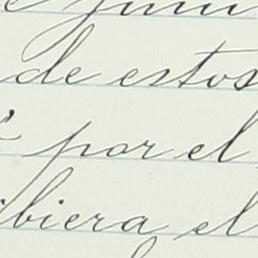 de estos
por el
ibiera el